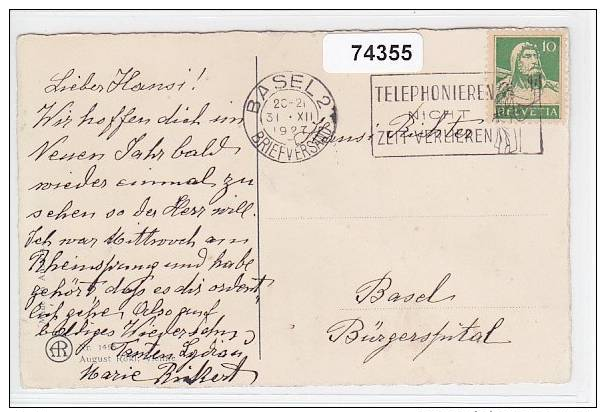 74355
Lieber Hansi!
Wir hoffen dich im
Neuen Jahr bald
wieder einmal zu
sehen so der Herr will.
Ich war Mittwoch am
Rheinsprung und habe
gehört, dass es dir ordent
lich gehe. Also auf
baldiges Wiedersehn
Tanten Lydia u
Marie Rickert
Nr. 149
August Rökl, Vienne
BASEL 2
20-21
31 · XII
1927
BRIEFVERSAND
TELEPHONIEREN
NICHT
ZEIT VERLIEREN
10
HELVETIA
Hansi
Basel
Bürgerspital